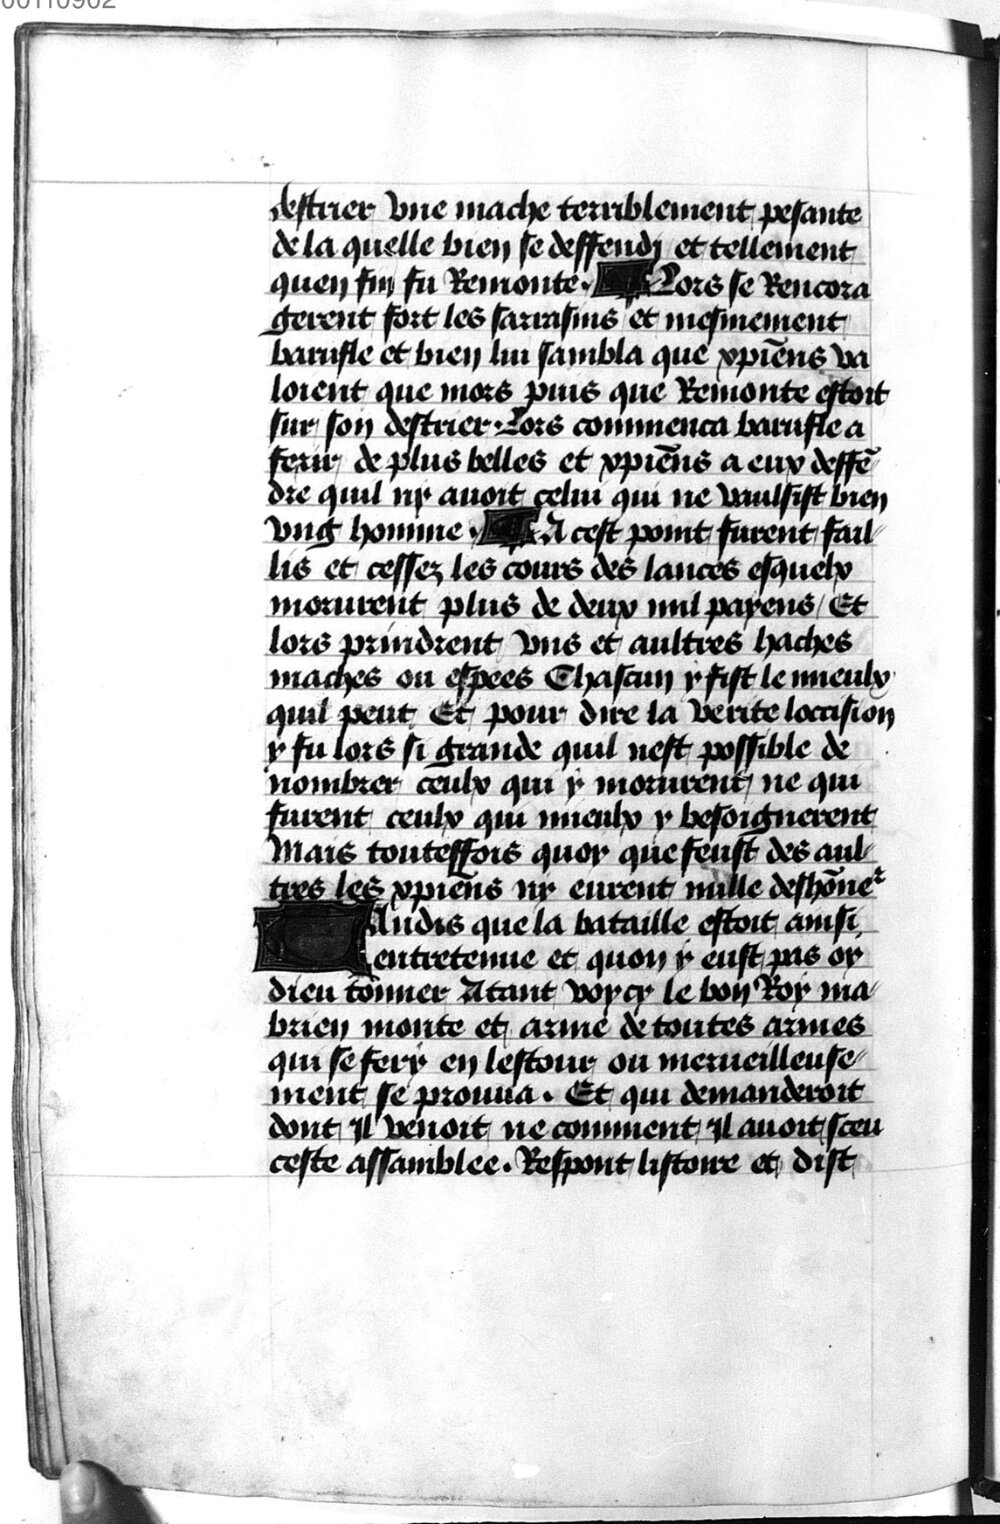 00110902
destrier vne mache terriblement pesante
de la quelle bien se deffendj et tellement
quen fin fu Remonte. Lors se Rencora
gerent fort les sarrasins et mesmement
barufle et bien lui sambla que xpiẽns va
loient que mors puis que Remonte estoit
sur son destrier. Lors commenca barufle a
ferir de plus belles et xpiẽns a eux deffẽ
dre quil ny auoit celui qui ne vaulsist bien
vng homme. A cest point furent fail
lis et cessez les cours des lances esquelx
morurent plus de deux mil payens / Et
lors prindrent vns et aultres haches
maches ou espees Chascun y fist le mieulx
quil peut Et pour dire la verite loccision
y fu lors si grande quil nest possible de
nombrer ceulx qui y morurent ne qui
furent ceulx qui mieulx y besoignerent
Mais touteffois quoy que feust des aul
tres les xpiẽns ny eurent nulle deshõneᵗ
andis que la bataille estoit ainsi
entretenue et quon y eust pas oy
dieu tõnner Atant voycy le bon Roy ma
brien monte et arme de toutes armes
qui se fery en lestour ou merueilleuse
ment se prouua. Et qui demanderoit
dont Jl venoit ne comment Jl auoit sceu
ceste assamblee. Respont listoire et dist